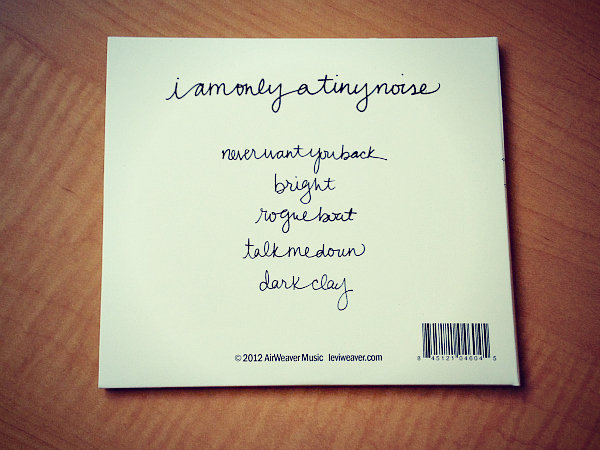 i am only a tiny noise
never want you back
bright
rogue boat
talk me down
dark clay
© 2012 AirWeaver Music leviweaver.com
8 45121 04604 5